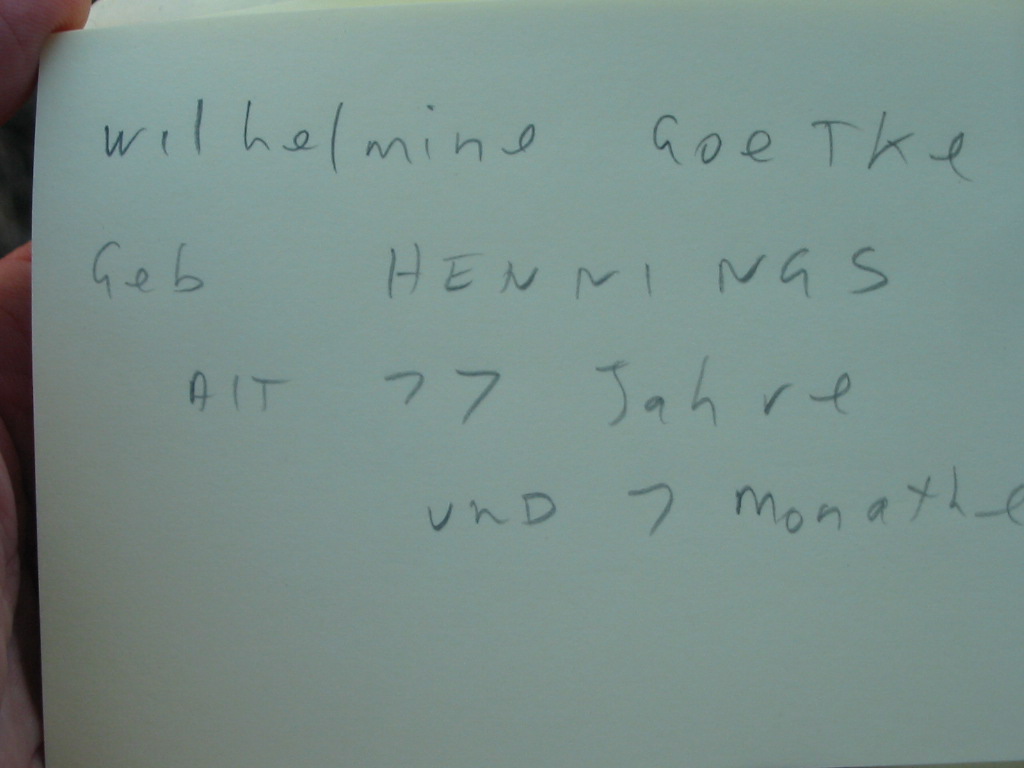 Wilhelmine Goetke
Geb HENNINGS
Alt 77 Jahre
und 7 Monathe